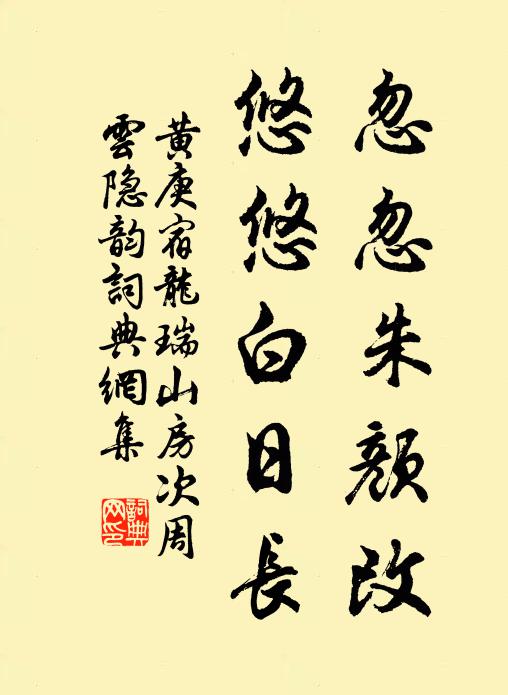 忽忽朱顏改
悠悠白日長
黄庚宿龍瑞山房次周
雲隐韵詞典網集
詞典
网印